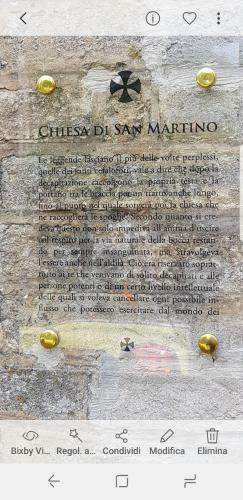 CHIESA DI SAN MARTINO
Le leggende lasciano il più delle volte perplessi,
quelle dei santi cefalofori, vale a dire che dopo la
decapitazione raccolgono la propria testa e la
portano tra le braccia per un tratto anche lungo,
fino al punto nel quale sorgerà poi la chiesa che
ne raccoglierà le spoglie. Secondo quanto si cre-
deva questo non solo impediva all'anima d'uscire
col respiro per la via naturale della bocca restan-
do per sempre insanguinata, ma stravolgeva
l'essere anche nell'aldilà. Ciò era riservato soprat-
tutto ai re che venivano di solito decapitati e alle
persone potenti o di un certo livello intellettuale
delle quali si voleva cancellare ogni possibile in-
flusso che potessero esercitare dal mondo dei
Bixby Vi...
Regol. a...
Condividi
Modifica
Elimina